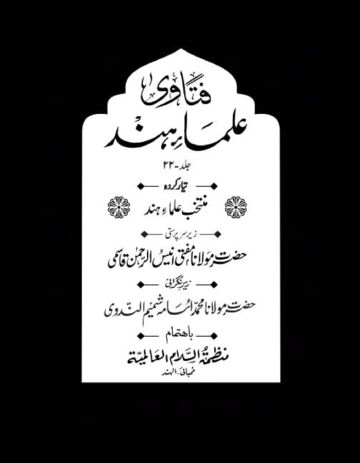 فتاویٰ
علماءِ ہند
جلد-۲۲
تیار کردہ
منتخب علماءِ ہند
زیر سرپرستی
حضرت مولانا مفتی انیس الرحمٰن قاسمی
زیر نگرانی
حضرت مولانا محمد اُسامہ شمیم الندوی
باہتمام
منظمۃ السلام العالمیۃ
ممبائی-الہند